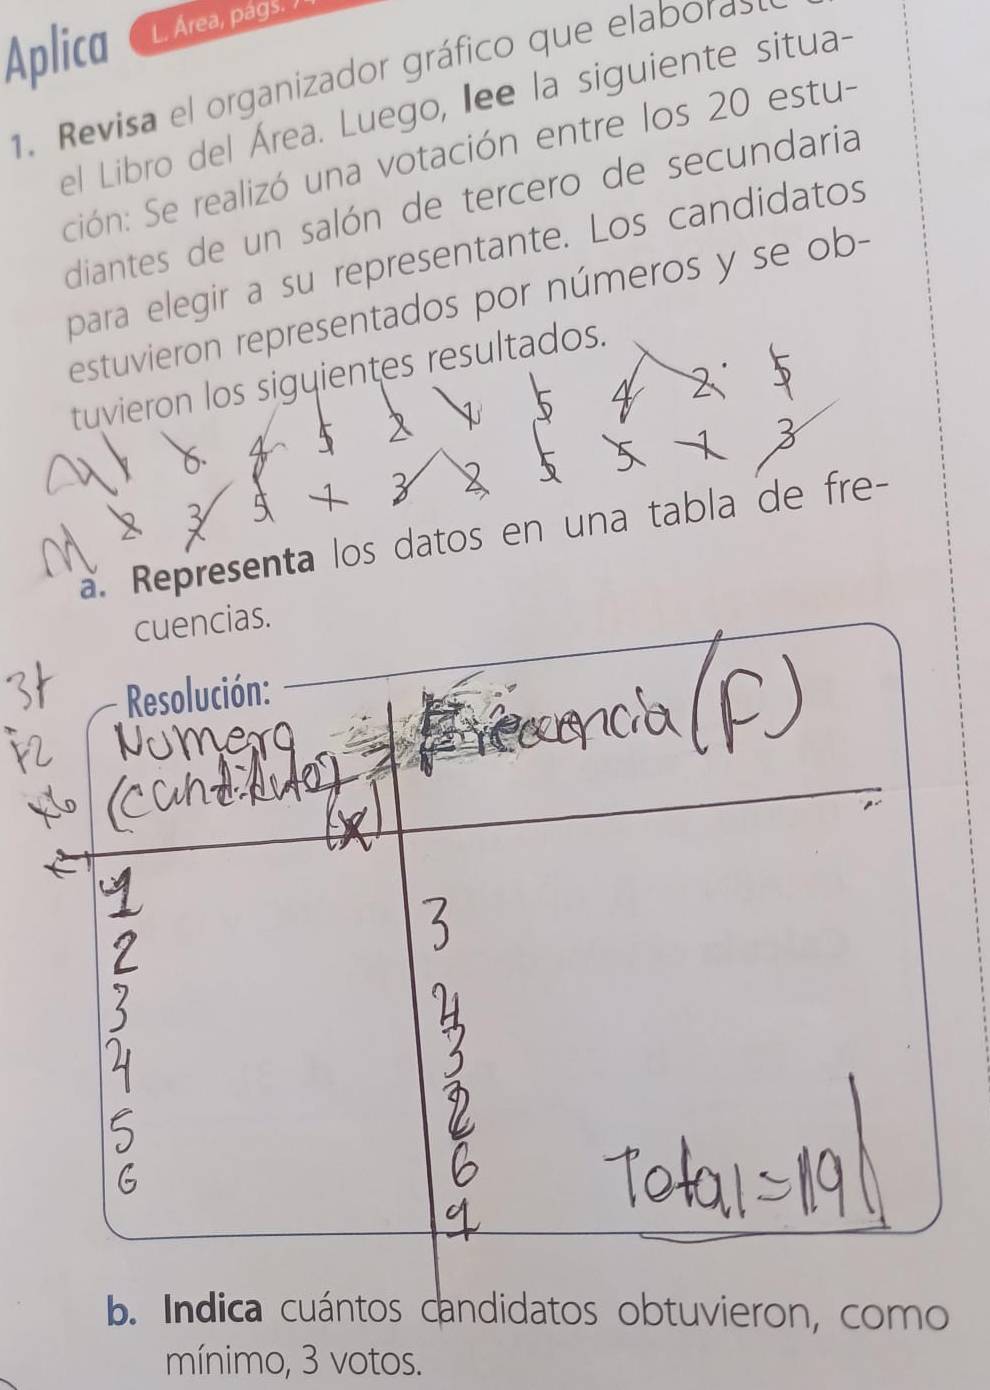 Aplica
L. Área, págs.
1. Revisa el organizador gráfico que elaboraste
el Libro del Área. Luego, lee la siguiente situa-
ción: Se realizó una votación entre los 20 estu-
diantes de un salón de tercero de secundaria
para elegir a su representante. Los candidatos
estuvieron representados por números y se ob-
tuvieron los siguientes resultados.
6 4 5 2 1 5 4 2 5
2 3 5 1 3 2 5 5 1 3
a. Representa los datos en una tabla de fre-
cuencias.
Resolución:
Numero Frecuencia (F)
(candidato)
(x)
1 3
2 4
3 3
4 2
5 6
6 1
Total = 19
b. Indica cuántos candidatos obtuvieron, como
mínimo, 3 votos.